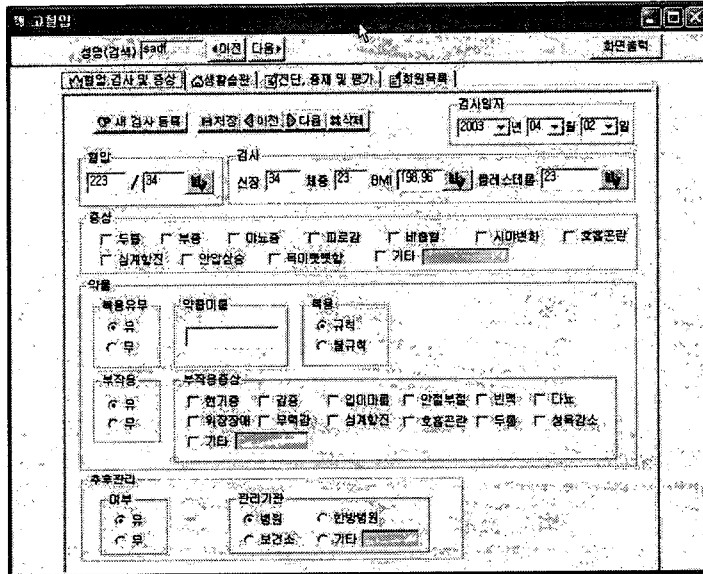 고혈압
성명(검색) sadf 이전 다음 화면출력
혈압 검사 및 증상 생활습관 진단, 중재 및 평가 회원목록
검사일자
새 검사 등록 저장 이전 다음 삭제 2003 년 04 월 02 일
혈압 검사
223 / 34 신장 34 체중 23 BMI 198,96 콜레스테롤 23
증상
두통 부종 야뇨증 피로감 비출혈 시야변화 호흡곤란
심계항진 안압상승 목이뻣뻣함 기타
약물
복용유무 약물이름 복용
유 규칙
무 불규칙
부작용 부작용증상
유 현기증 갈증 입이마름 안절부절 빈맥 다뇨
무 위장장애 무력감 심계항진 호흡곤란 두통 성욕감소
기타
추후관리
여부 관리기관
유 병원 한방병원
무 보건소 기타